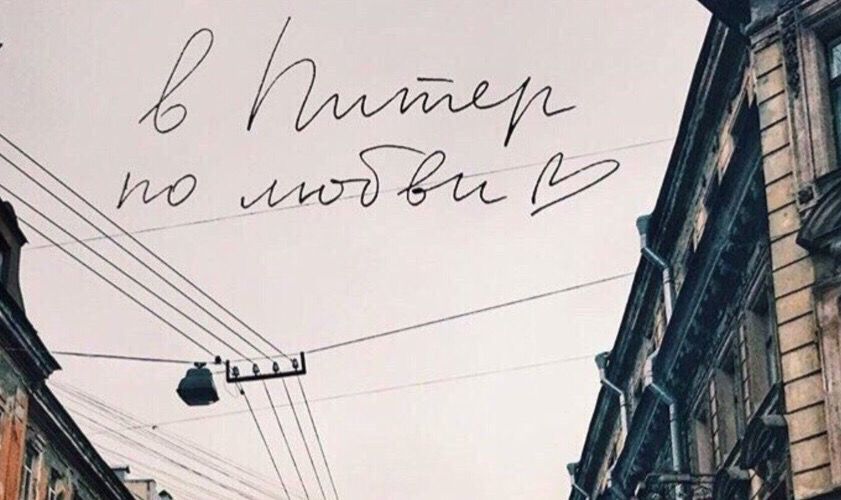 в Питер
по любви